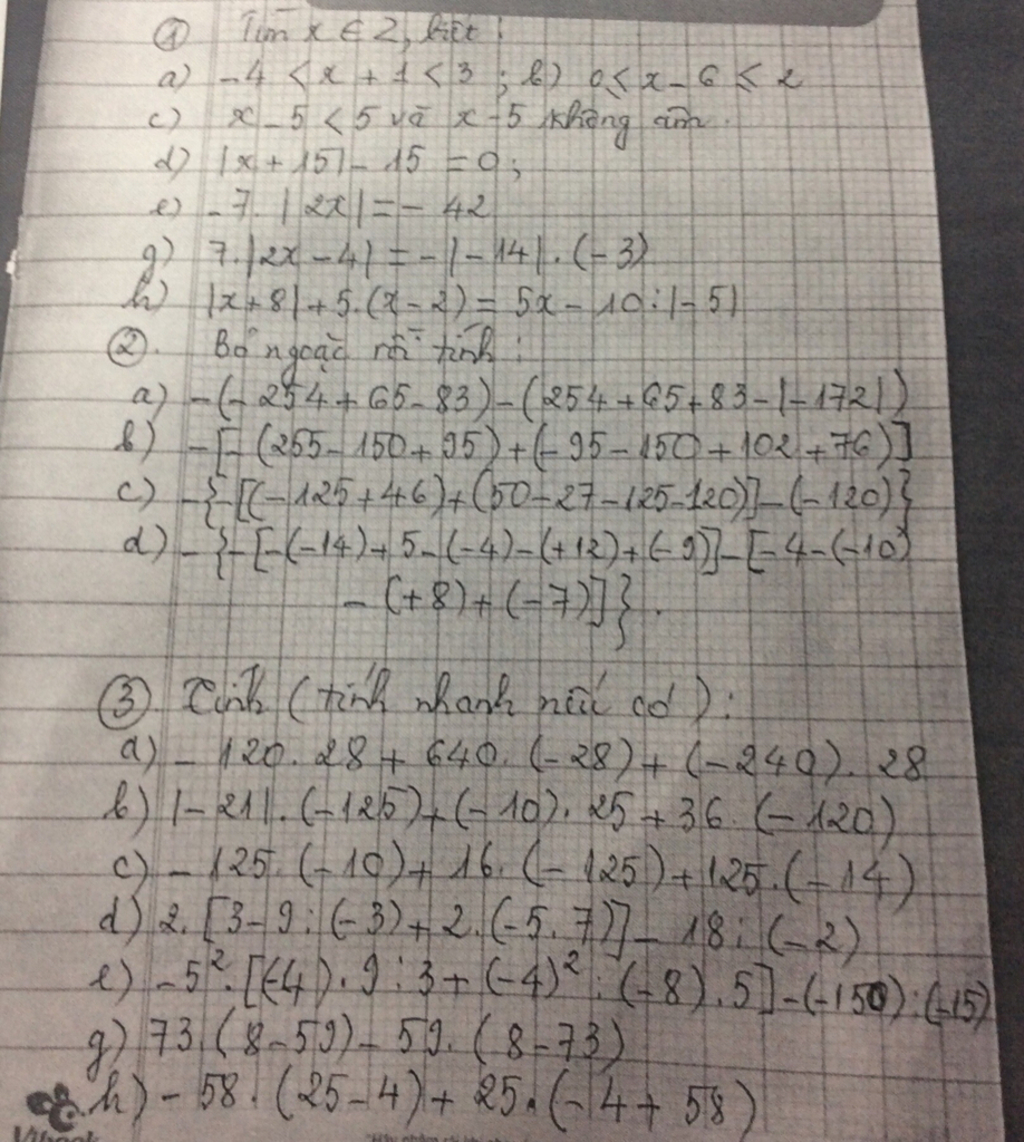 ① Tìm x ∈ Z, biết:
a) -4 < x + 1 < 3 ; b) 0 ≤ x - 6 ≤ 2
c) x - 5 < 5 và x - 5 không âm.
d) |x + 15| - 15 = 0;
e) -7. |2x| = - 42
g) 7.|2x - 4| = -|-14|.(-3)
h) |x+8| + 5.(x-2) = 5x - 10:|-5|
②. Bỏ ngoặc rồi tính:
a) -(-254+65-83)-(254+65+83-|-172|)
b) -[-(255-150+95)+(-95-150+102+76)]
c) -{-[(-125+46)+(50-27-125-120)]-(-120)}
d) -{-[-(-14)+5-(-4)-(+12)+(-9)]-[-4-(-10)
-(+8)+(-7)]}.
③. Tính (tính nhanh nếu có):
a) - 120. 28 + 640. (-28) + (-240). 28
b) |-21|.(-125)+(-10). 25 + 36. (-120)
c) - 125. (-10) + 16. (-125) + 125.(-14)
d) 2. [3-9:(-3)+2.(-5.7)] - 18:(-2)
e) -5². [(-4).9:3+(-4)²:(-8).5]-(-150):(-15)
g) 73.(8-59)-59.(8-73)
h) -58. (25-4) + 25.(-4+58)
Vibook